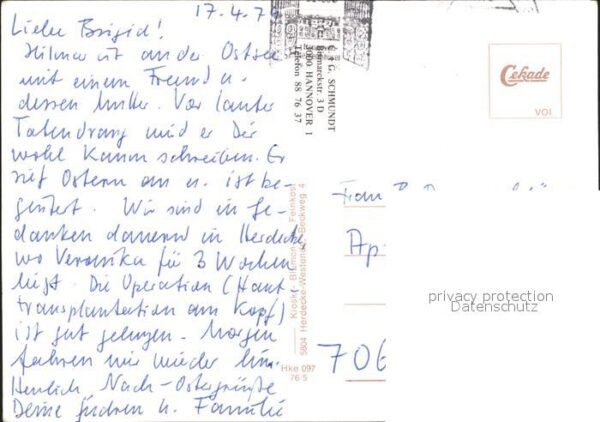 17.4.7
Liebe Brigid!
Hilmar ist an der Ostsee
mit einem Freund u.
dessen Mutter. Vor lauter
Tatendrang wird er Dir
wohl kaum schreiben. Er
rief Ostern an u. ist be-
geistert. Wir sind in Ge-
danken dauernd in Herdecke,
wo Veronika für 3 Wochen
liegt. Die Operation (Haut
transplantation am Kopf)
ist gut gelungen. Morgen
fahren wir wieder hin.
Herzlich Nach-Ostergrüße
Deine Gudrun u. Familie
C + G. SCHMUNDT
Bismarckstr. 3 D
3000 HANNOVER 1
Telefon 88 76 37
Kiosk - Blumen - Feinkost
5804 Herdecke-Westende Beckweg 4
Hke 097
76/5
Cekade
VOI
Frau
Ap
706
privacy protection
Datenschutz